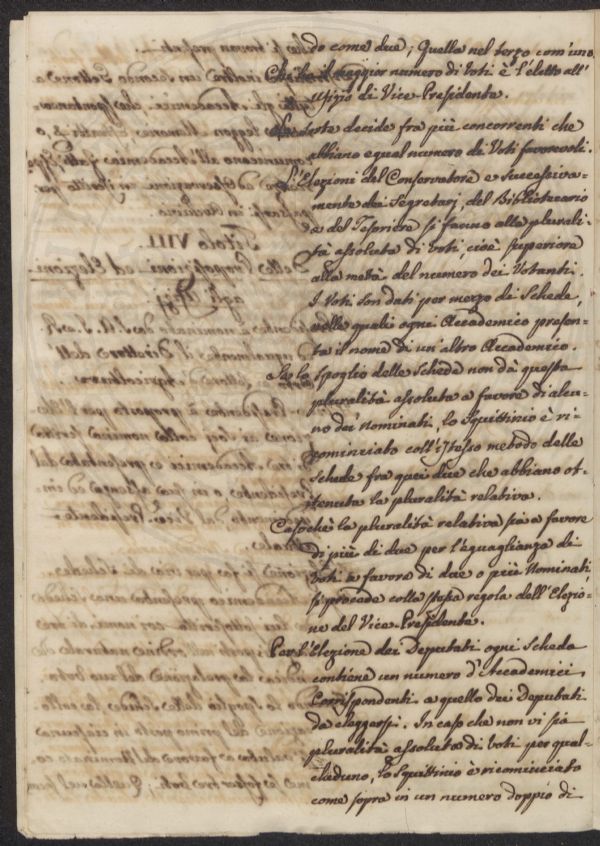 do come due; Quella nel terzo com'uno.
Chi ha il maggior numero di Voti è l'eletto all'
Ufizio di Vice-Presidente.
La Sorte decide fra più concorrenti che
abbiano egual numero di Voti favorevoli.
L'Elezioni del Conservatore e successiva=
mente dei Segretarj, del Bibliotecario
e del Tesoriere si fanno alla plurali=
tà assoluta di Voti, cioè superiore
alla metà del numero dei Votanti.
I Voti son dati per mezzo di Schede,
nelle quali ogni Accademico presen=
ta il nome di un'altro Accademico.
Se lo spoglio delle Schede non dà questa
pluralità assoluta a favore di alcu=
no dei Nominati, lo Squittinio è ri=
cominciato coll'istesso metodo delle
Schede fra quei due che abbiano ot=
tenuta la pluralità relativa.
Caso chè la pluralità relativa sia a favore
di più di due per l'eguaglianza di
Voti a favore di due o più Nominati
si procede colla stessa regola dell'Elezio=
ne del Vice-Presidente.
Per l'Elezione dei Deputati ogni Scheda
contiene un numero d'Accademici
Corrispondenti a quello dei Deputati
da eleggersi. In caso che non vi sia
pluralità assoluta di Voti per qual=
cheduno, lo Squittinio è ricominciato
come sopra in un numero doppio di